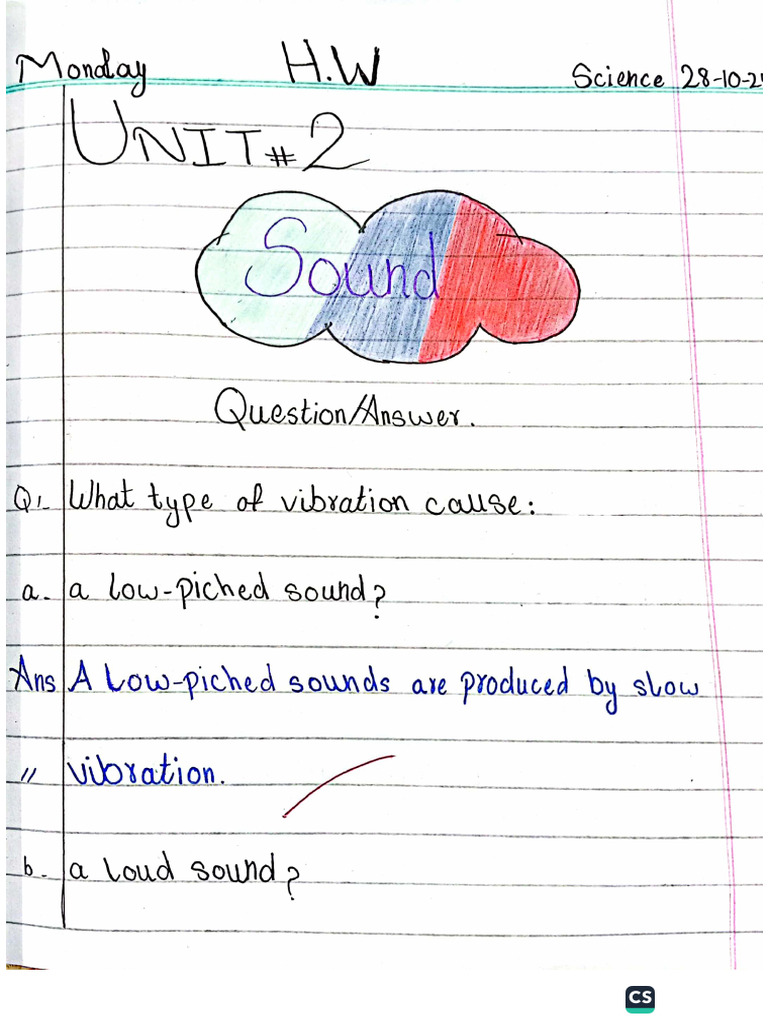 Monday H.W Science 28-10-2
UNIT#2
Sound
Question/Answer.
Q1. What type of vibration cause:
a. a low-piched sound?
Ans A Low-piched sounds are produced by slow
" vibration.
b. a loud sound?
CS